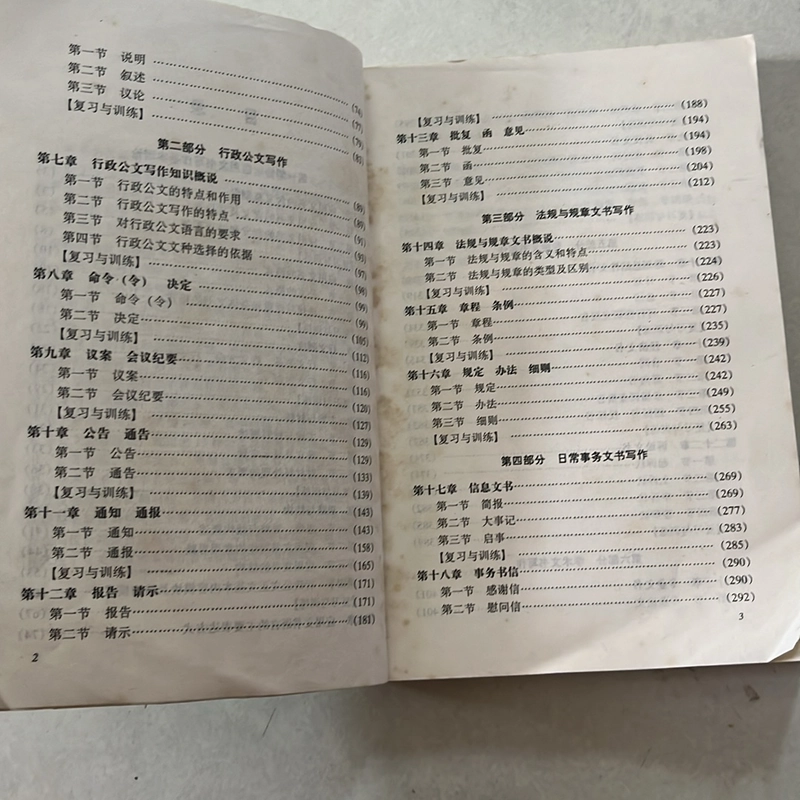 第一节 说明 (74)
第二节 叙述 (77)
第三节 议论 (79)
【复习与训练】 (83)
第二部分 行政公文写作
第七章 行政公文写作知识概说 (89)
第一节 行政公文的特点和作用 (89)
第二节 行政公文写作的特点 (91)
第三节 对行政公文语言的要求 (93)
第四节 行政公文文种选择的依据 (97)
【复习与训练】 (98)
第八章 命令(令) 决定 (99)
第一节 命令(令) (99)
第二节 决定 (105)
【复习与训练】 (112)
第九章 议案 会议纪要 (116)
第一节 议案 (116)
第二节 会议纪要 (120)
【复习与训练】 (127)
第十章 公告 通告 (129)
第一节 公告 (129)
第二节 通告 (133)
【复习与训练】 (139)
第十一章 通知 通报 (143)
第一节 通知 (143)
第二节 通报 (158)
【复习与训练】 (165)
第十二章 报告 请示 (171)
第一节 报告 (171)
第二节 请示 (181)
2
【复习与训练】 (188)
第十三章 批复 函 意见 (194)
第一节 批复 (194)
第二节 函 (198)
第三节 意见 (204)
【复习与训练】 (212)
第三部分 法规与规章文书写作
第十四章 法规与规章文书概说 (223)
第一节 法规与规章的含义和特点 (223)
第二节 法规与规章的类型及区别 (224)
【复习与训练】 (226)
第十五章 章程 条例 (227)
第一节 章程 (227)
第二节 条例 (235)
【复习与训练】 (239)
第十六章 规定 办法 细则 (242)
第一节 规定 (242)
第二节 办法 (249)
第三节 细则 (255)
【复习与训练】 (263)
第四部分 日常事务文书写作
第十七章 信息文书 (269)
第一节 简报 (269)
第二节 大事记 (277)
第三节 启事 (283)
【复习与训练】 (285)
第十八章 事务书信 (290)
第一节 感谢信 (290)
第二节 慰问信 (292)
3